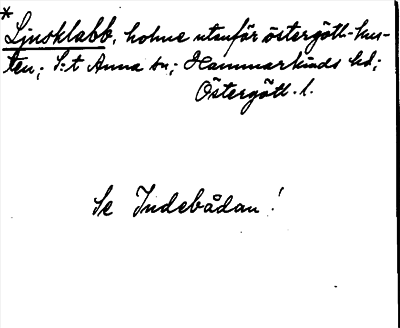 * Ljusklabb, holme utanför östergötl-kus-
ten; S:t Anna sn; Hammarkinds hd;
Östergötl. l.
Se Indebådan!